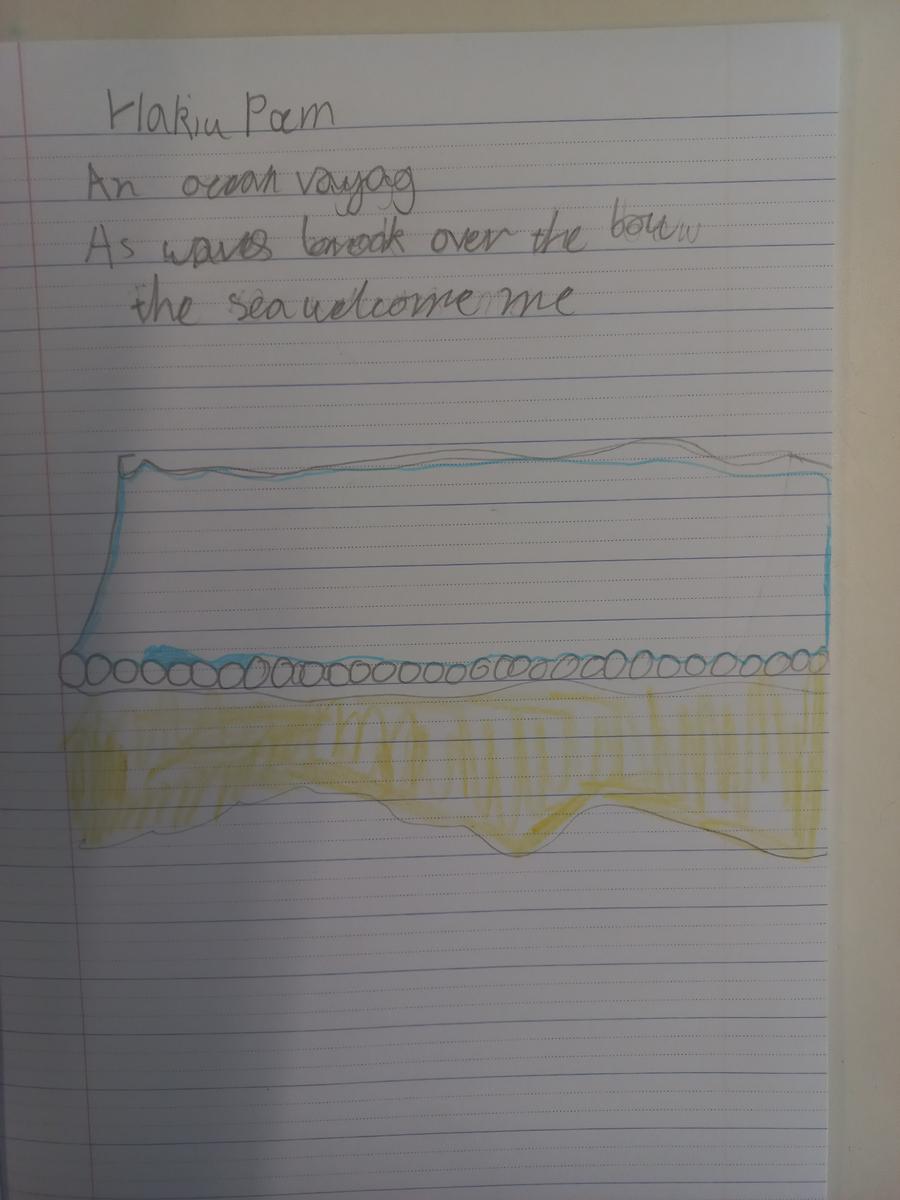 Hakiu Poem
An ocean vayag
As waves break over the bouw
the sea welcome me